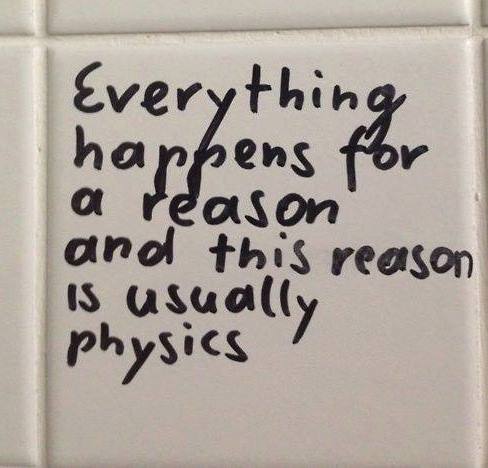 Everything
happens for
a reason
and this reason
is usually
physics